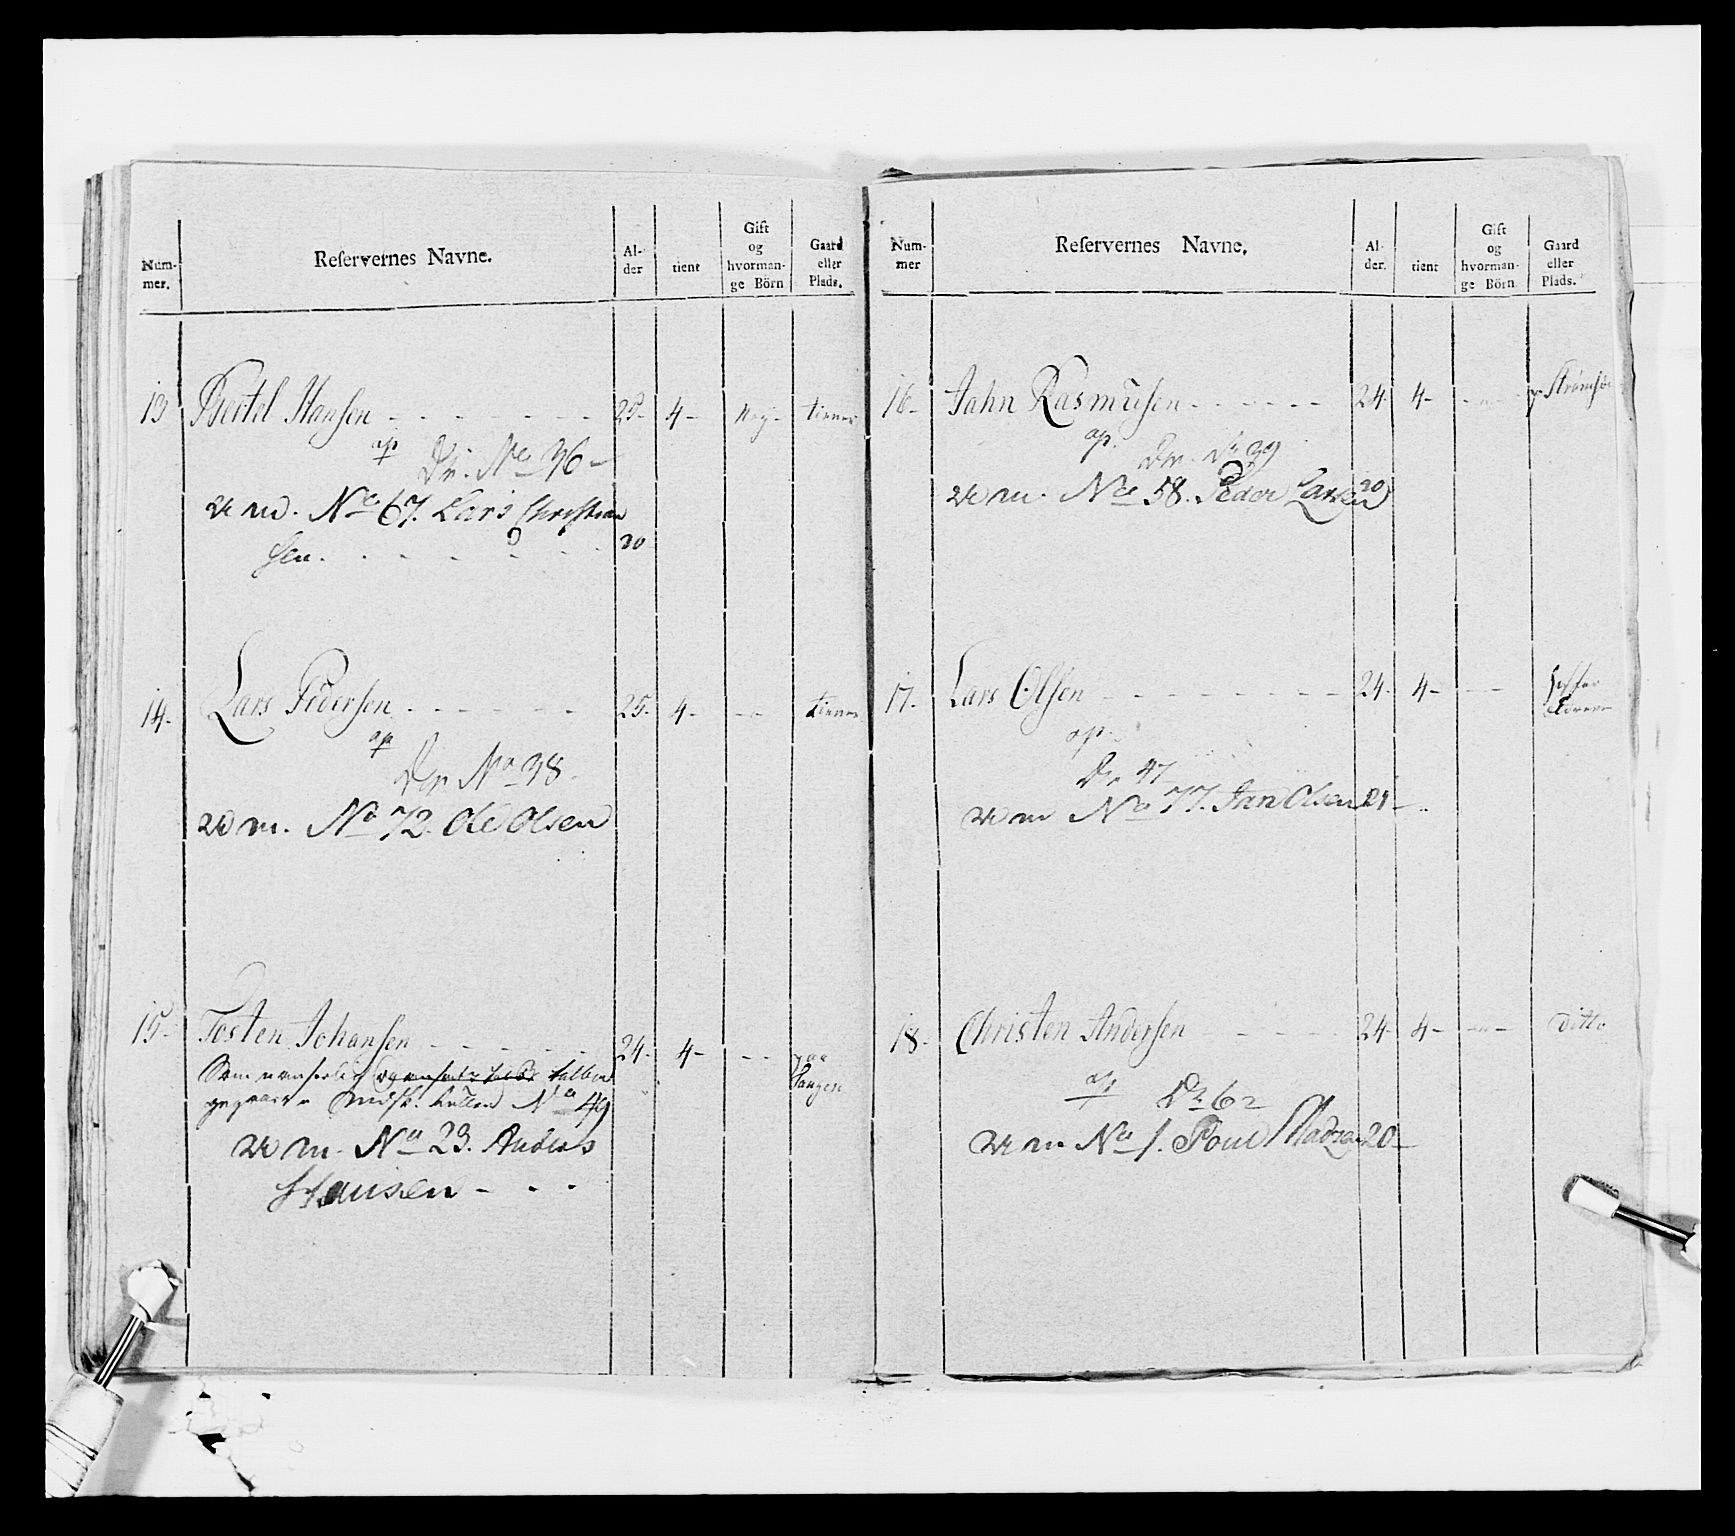 Num-
mer.
Reservernes Navne.
Al-
der
tient
Gift
og
hvorman-
ge Börn
Gaard
eller
Plads.
13 Bertel Hansen - - - - - - - 25- 4- Ney- tiener
ap
Dr. No 36 -
v m. No 67. Lars Christian
sen. - - - - - - 20
14- Lars Pedersen - - - - - - 25- 4- - - tiener
ap
Dr No 38
v m. No 72. Ole Olsen
15- Tosten Johansen - - - - - 24- 4- - - paa
No 49
v m. No 23. Anders
Hansen - - -
Num-
mer
Reservernes Navne.
Al-
der.
tient
Gift
og
hvorman-
ge Börn
Gaard
eller
Plads.
16- Jahn Rasmusen - - - - - - 24- 4- - - -
ap.
Dr. No 39
v m. No 58. Peder Larsen 20
17- Lars Olsen - - - - - - - - 24- 4- - -
ap.
Dr 47
v m No 77. Jan Olsen 21 -
18- Christen Andersen - - - - 24- 4- - - - ditto
ap
Dr 62
v m No 1. Poul Madsen 20-